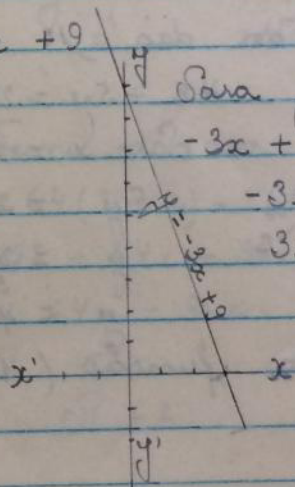 +9
y
Para
-3x +
-3
3
= -3x +9
x'
x
y'